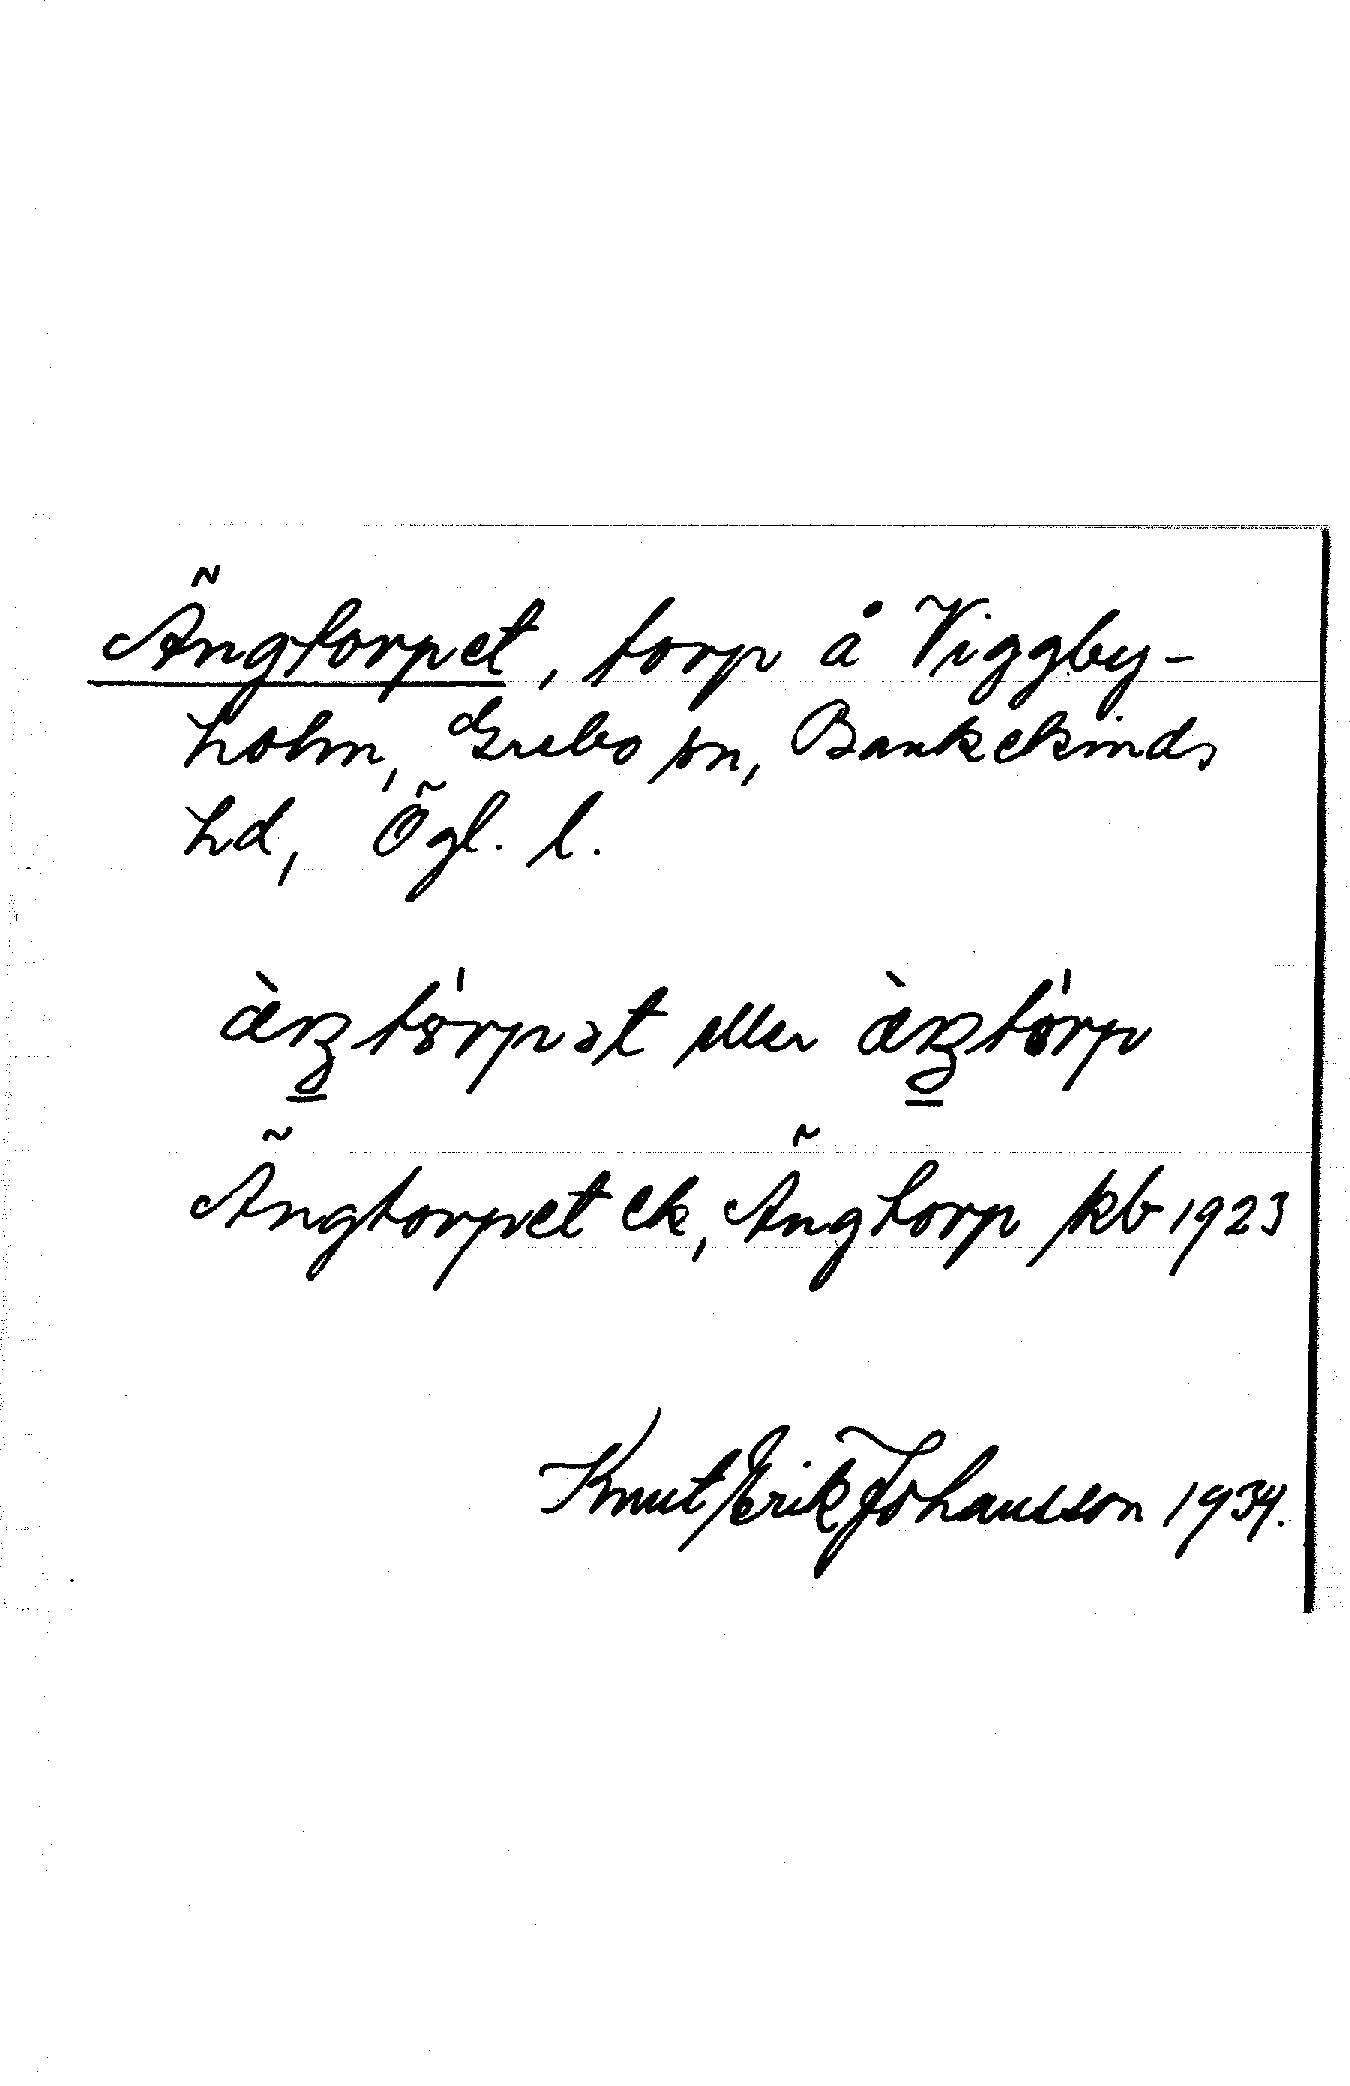 Ängtorpet, torp å Viggby-
holm, Grebo sn, Bankekinds
hd, Ögl. l.
eller
Ängtorpet ek, Ängtorp kb 1923
Knut Erik Johansson 1934.